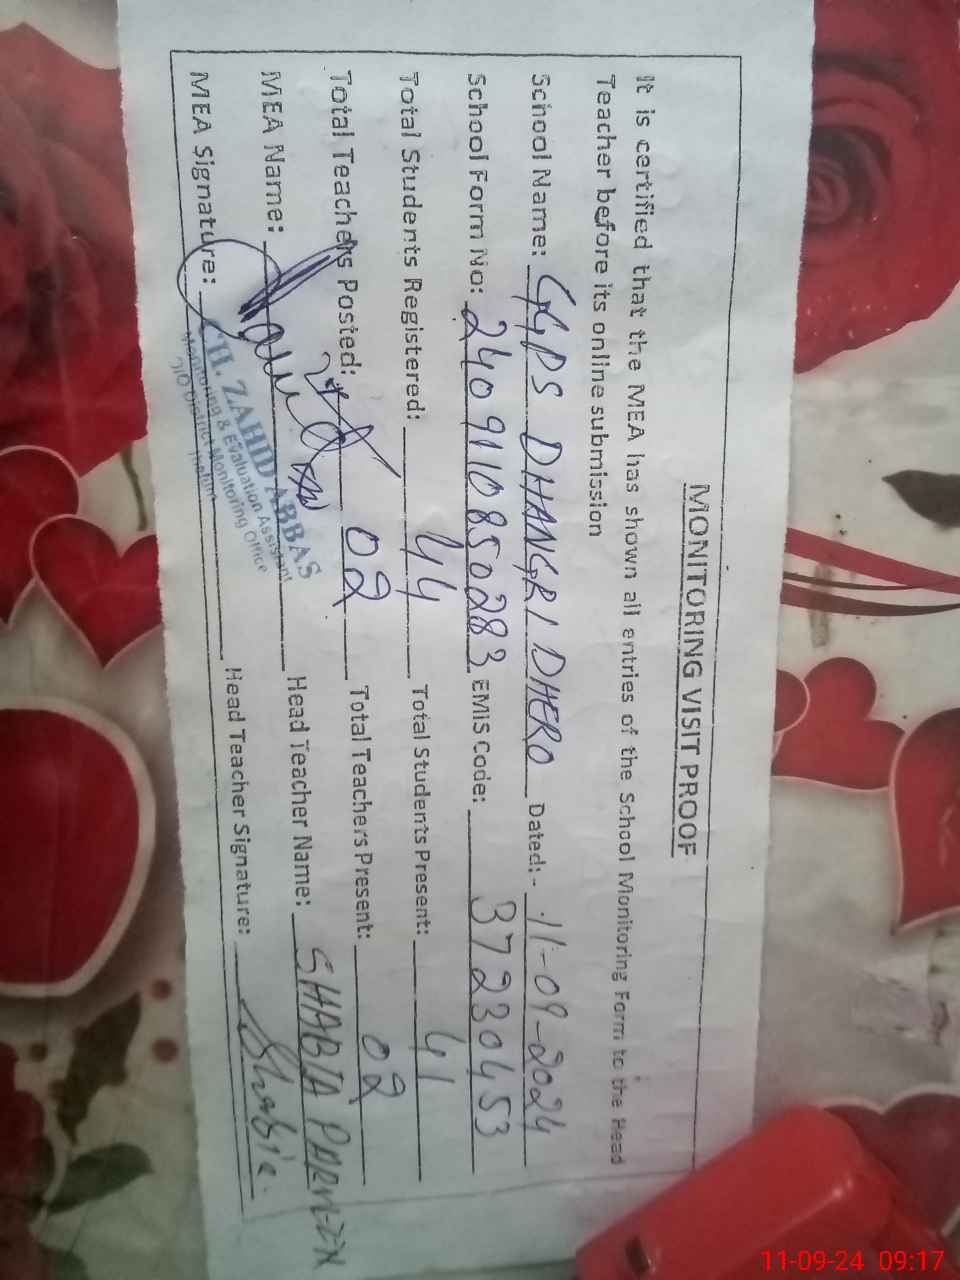 MONITORING VISIT PROOF
It is certified that the MEA has shown all entries of the School Monitoring Form to the Head
Teacher before its online submission
School Name: GGPS DHANGRI DHERO Dated:- 11-09-2024
School Form No: 2409110850283 EMIS Code: 37230453
Total Students Registered: 44 Total Students Present: 41
Total Teachers Posted: 02 Total Teachers Present: 02
MEA Name: Head Teacher Name: SHABIA PARVEEN
MEA Signature: Head Teacher Signature: Shabia.
CH. ZAHID ABBAS
Monitoring & Evaluation Assistant
O/O District Monitoring Office
Jhelum
11-09-24 09:17